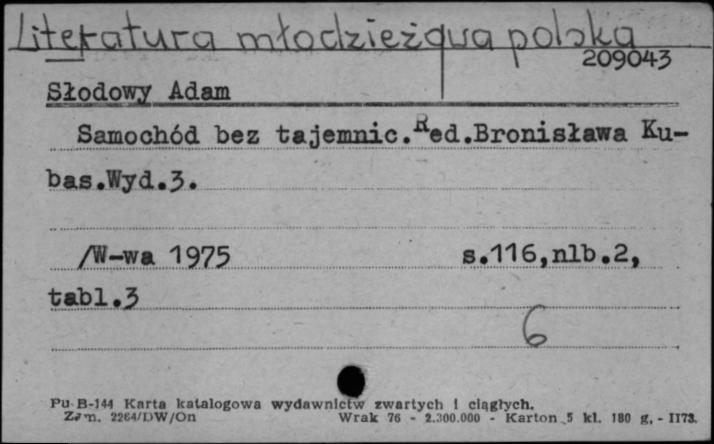 Literatura młodzieżowa polska
209043
Słodowy Adam
Samochód bez tajemnic.Red.Bronisława Ku-
bas.Wyd.3.
/W-wa 1975 s.116,nlb.2,
tabl.3
6
Pu B-144 Karta katalogowa wydawnictw zwartych i ciągłych.
Zam. 2264/DW/On Wrak 76 - 2.300.000 - Karton 5 kl. 180 g. - II73.